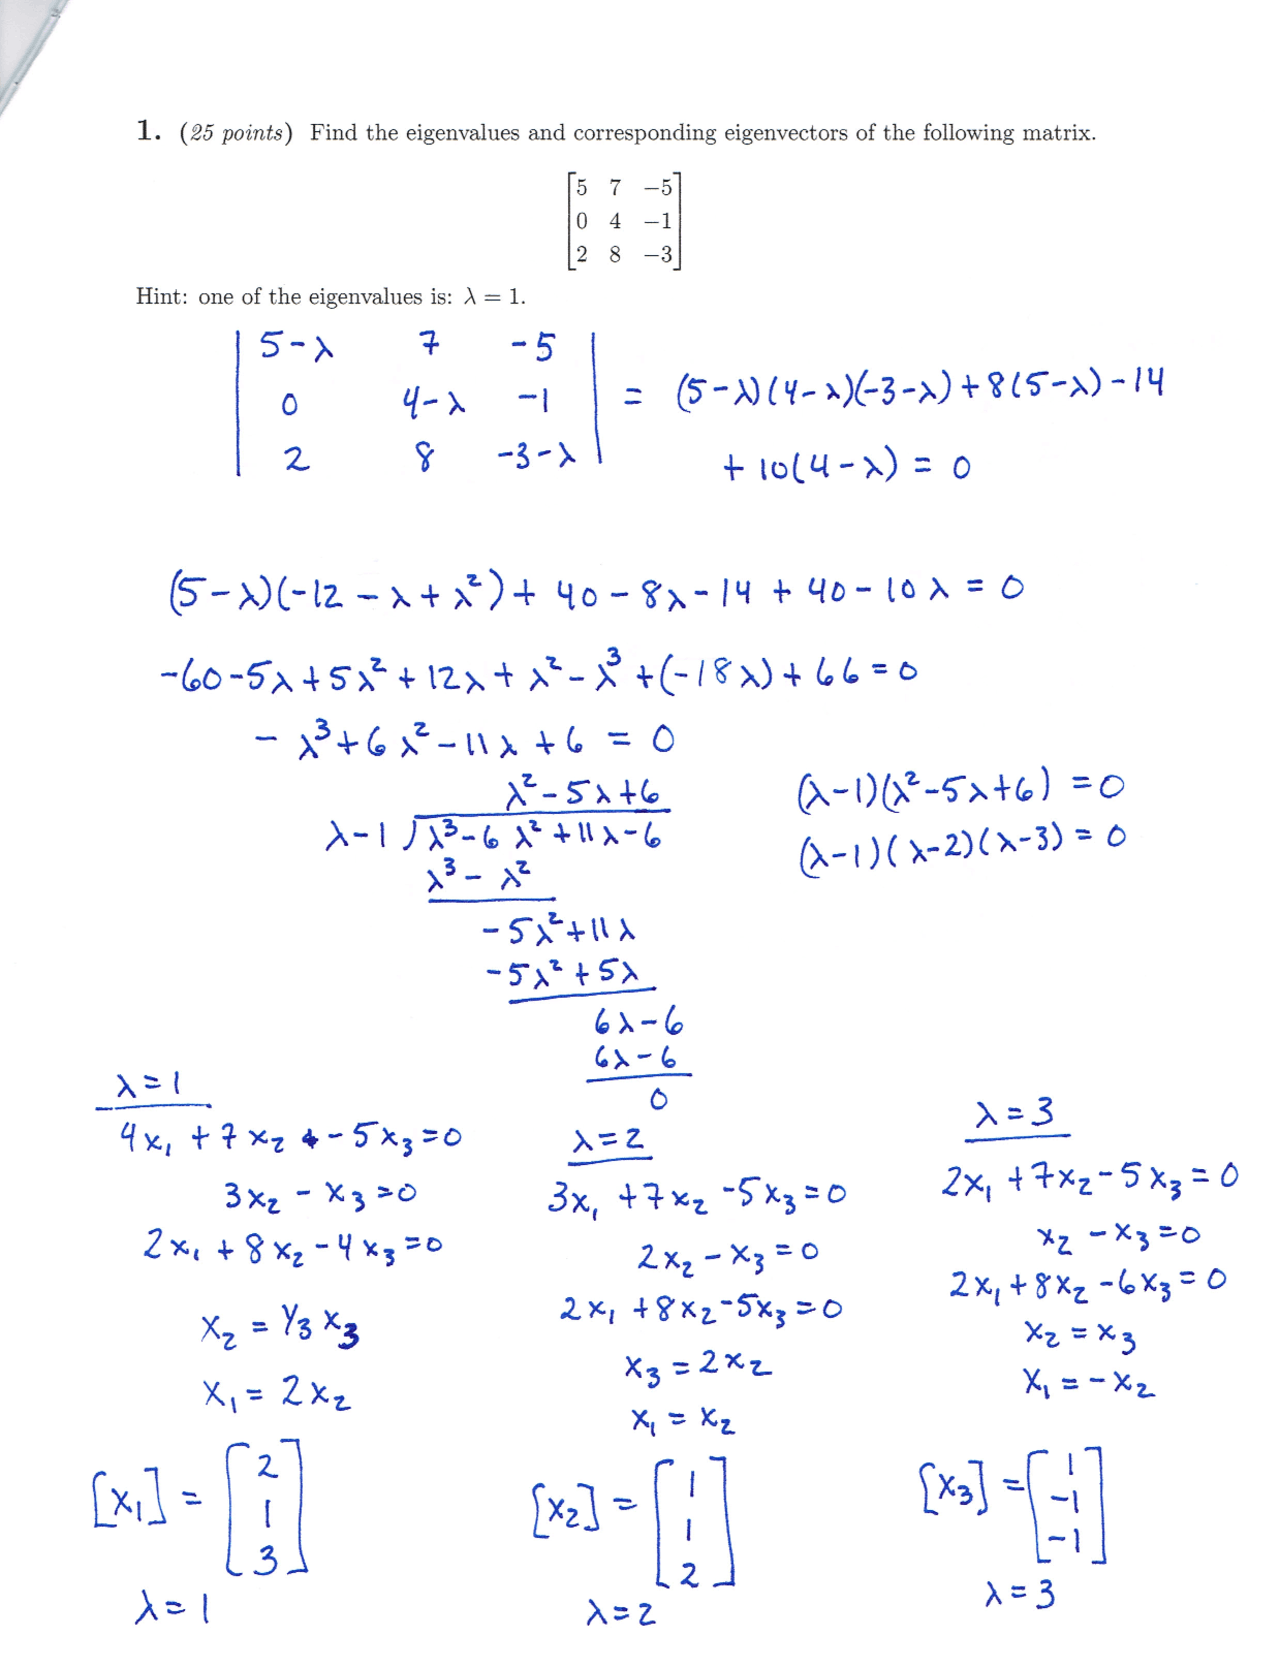 1. (25 points) Find the eigenvalues and corresponding eigenvectors of the following matrix.
[5 7 −5]
[0 4 −1]
[2 8 −3]
Hint: one of the eigenvalues is: λ = 1.
| 5-λ 7 -5 |
| 0 4-λ -1 | = (5-λ)(4-λ)(-3-λ)+8(5-λ)-14
| 2 8 -3-λ | + 10(4-λ) = 0
(5-λ)(-12-λ+λ²)+ 40-8λ-14 + 40-10λ = 0
-60-5λ+5λ²+12λ+λ²-λ³+(-18λ)+66=0
-λ³+6λ²-11λ+6 = 0
λ²-5λ+6
λ-1 ) λ³-6λ²+11λ-6
λ³-λ²
-5λ²+11λ
-5λ²+5λ
6λ-6
6λ-6
0
(λ-1)(λ²-5λ+6) = 0
(λ-1)(λ-2)(λ-3) = 0
λ=1
4x₁+7x₂ -5x₃=0
3x₂-x₃=0
2x₁+8x₂-4x₃=0
x₂ = 1/3 x₃
x₁ = 2x₂
[x₁] = [2
1
3]
λ=1
λ=2
3x₁+7x₂-5x₃=0
2x₂-x₃=0
2x₁+8x₂-5x₃=0
x₃=2x₂
x₁ = x₂
[x₂] = [1
1
2]
λ=2
λ=3
2x₁+7x₂-5x₃=0
x₂-x₃=0
2x₁+8x₂-6x₃=0
x₂=x₃
x₁=-x₂
[x₃] = [1
-1
-1]
λ=3